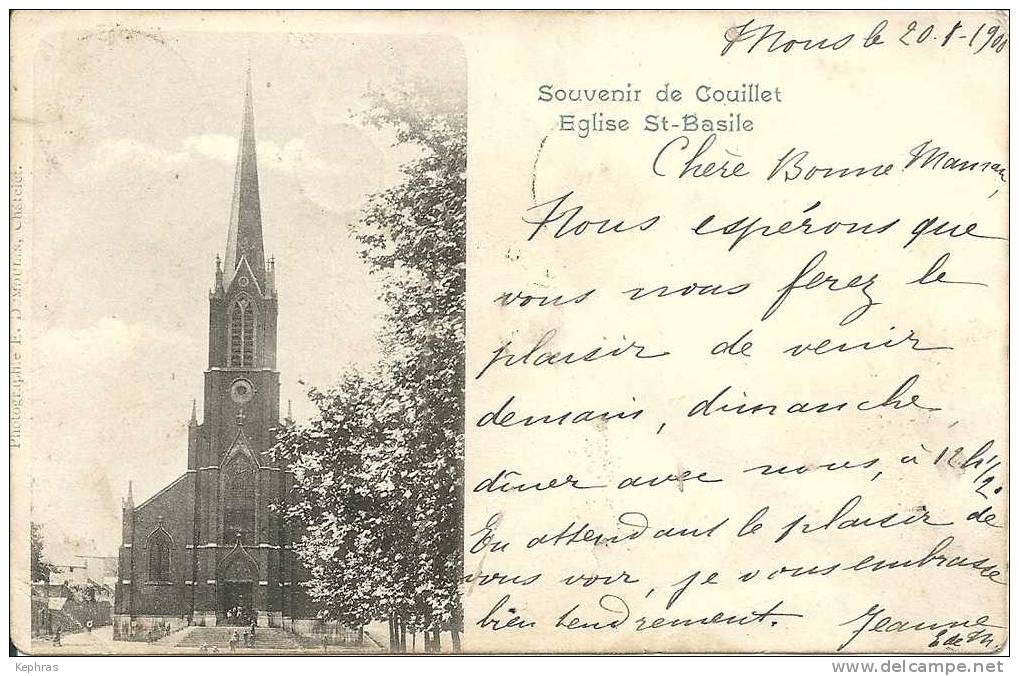 Mons le 20.8-1900
Souvenir de Couillet
Eglise St-Basile
Chère Bonne Maman,
Nous espérons que
vous nous ferez le
plaisir de venir
demain, dimanche,
dîner avec nous, à 12h 1/2.
En attendant le plaisir de
vous voir, je vous embrasse
bien tendrement. Jeanne
Photographie E. D MOULIN, Châtelet.
Kephras
www.delcampe.net